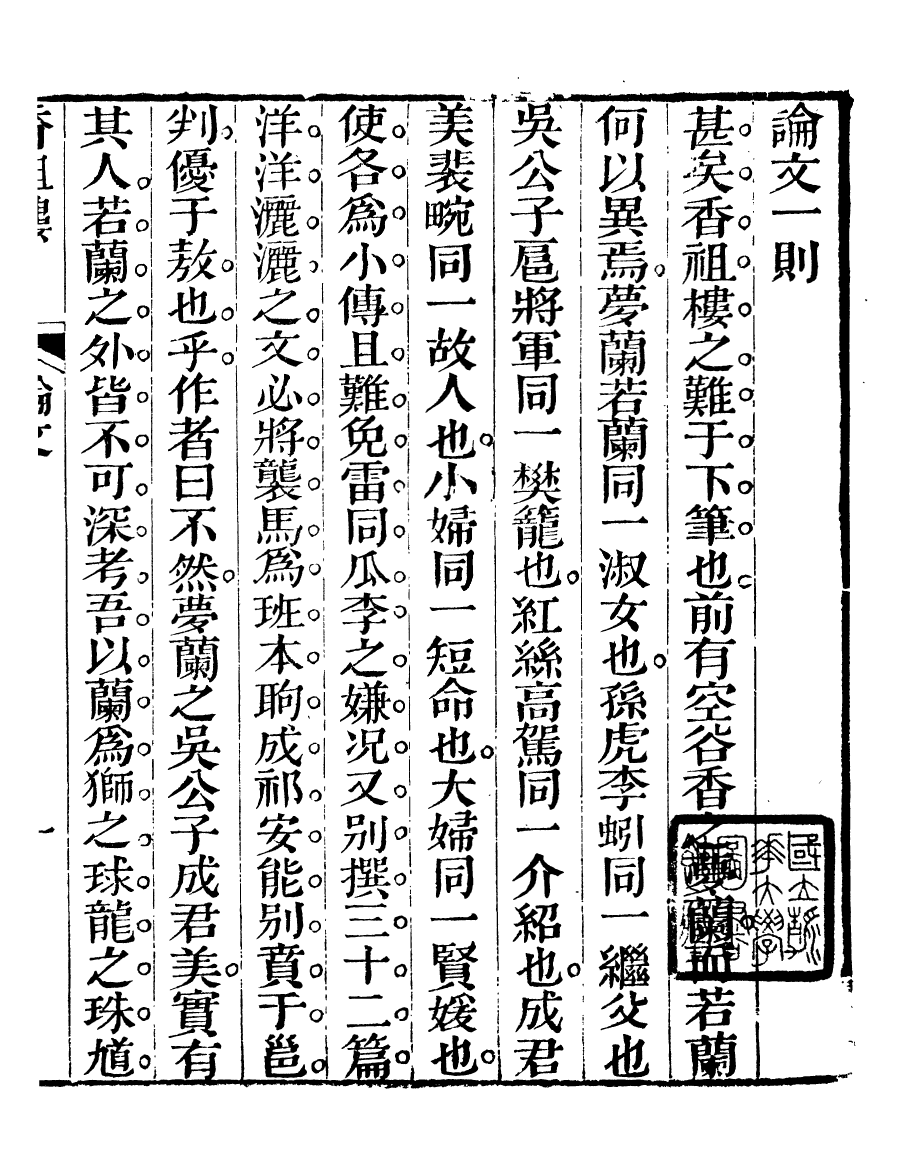 論文一則
甚矣香祖樓之難于下筆也前有空谷香之夢蘭而若蘭
何以異焉夢蘭若蘭同一淑女也孫虎李蚓同一繼父也
吳公子扈將軍同一樊籠也紅絲高駕同一介紹也成君
美裴畹同一故人也小婦同一短命也大婦同一賢媛也
使各爲小傳且難免雷同瓜李之嫌况又别撰三十二篇
洋洋灑灑之文必將襲馬爲班本眴成祁安能别賁于邕
判優于敖也乎作者曰不然夢蘭之吳公子成君美實有
其人若蘭之外皆不可深考吾以蘭爲獅之球龍之珠馗
香祖樓
論文
一